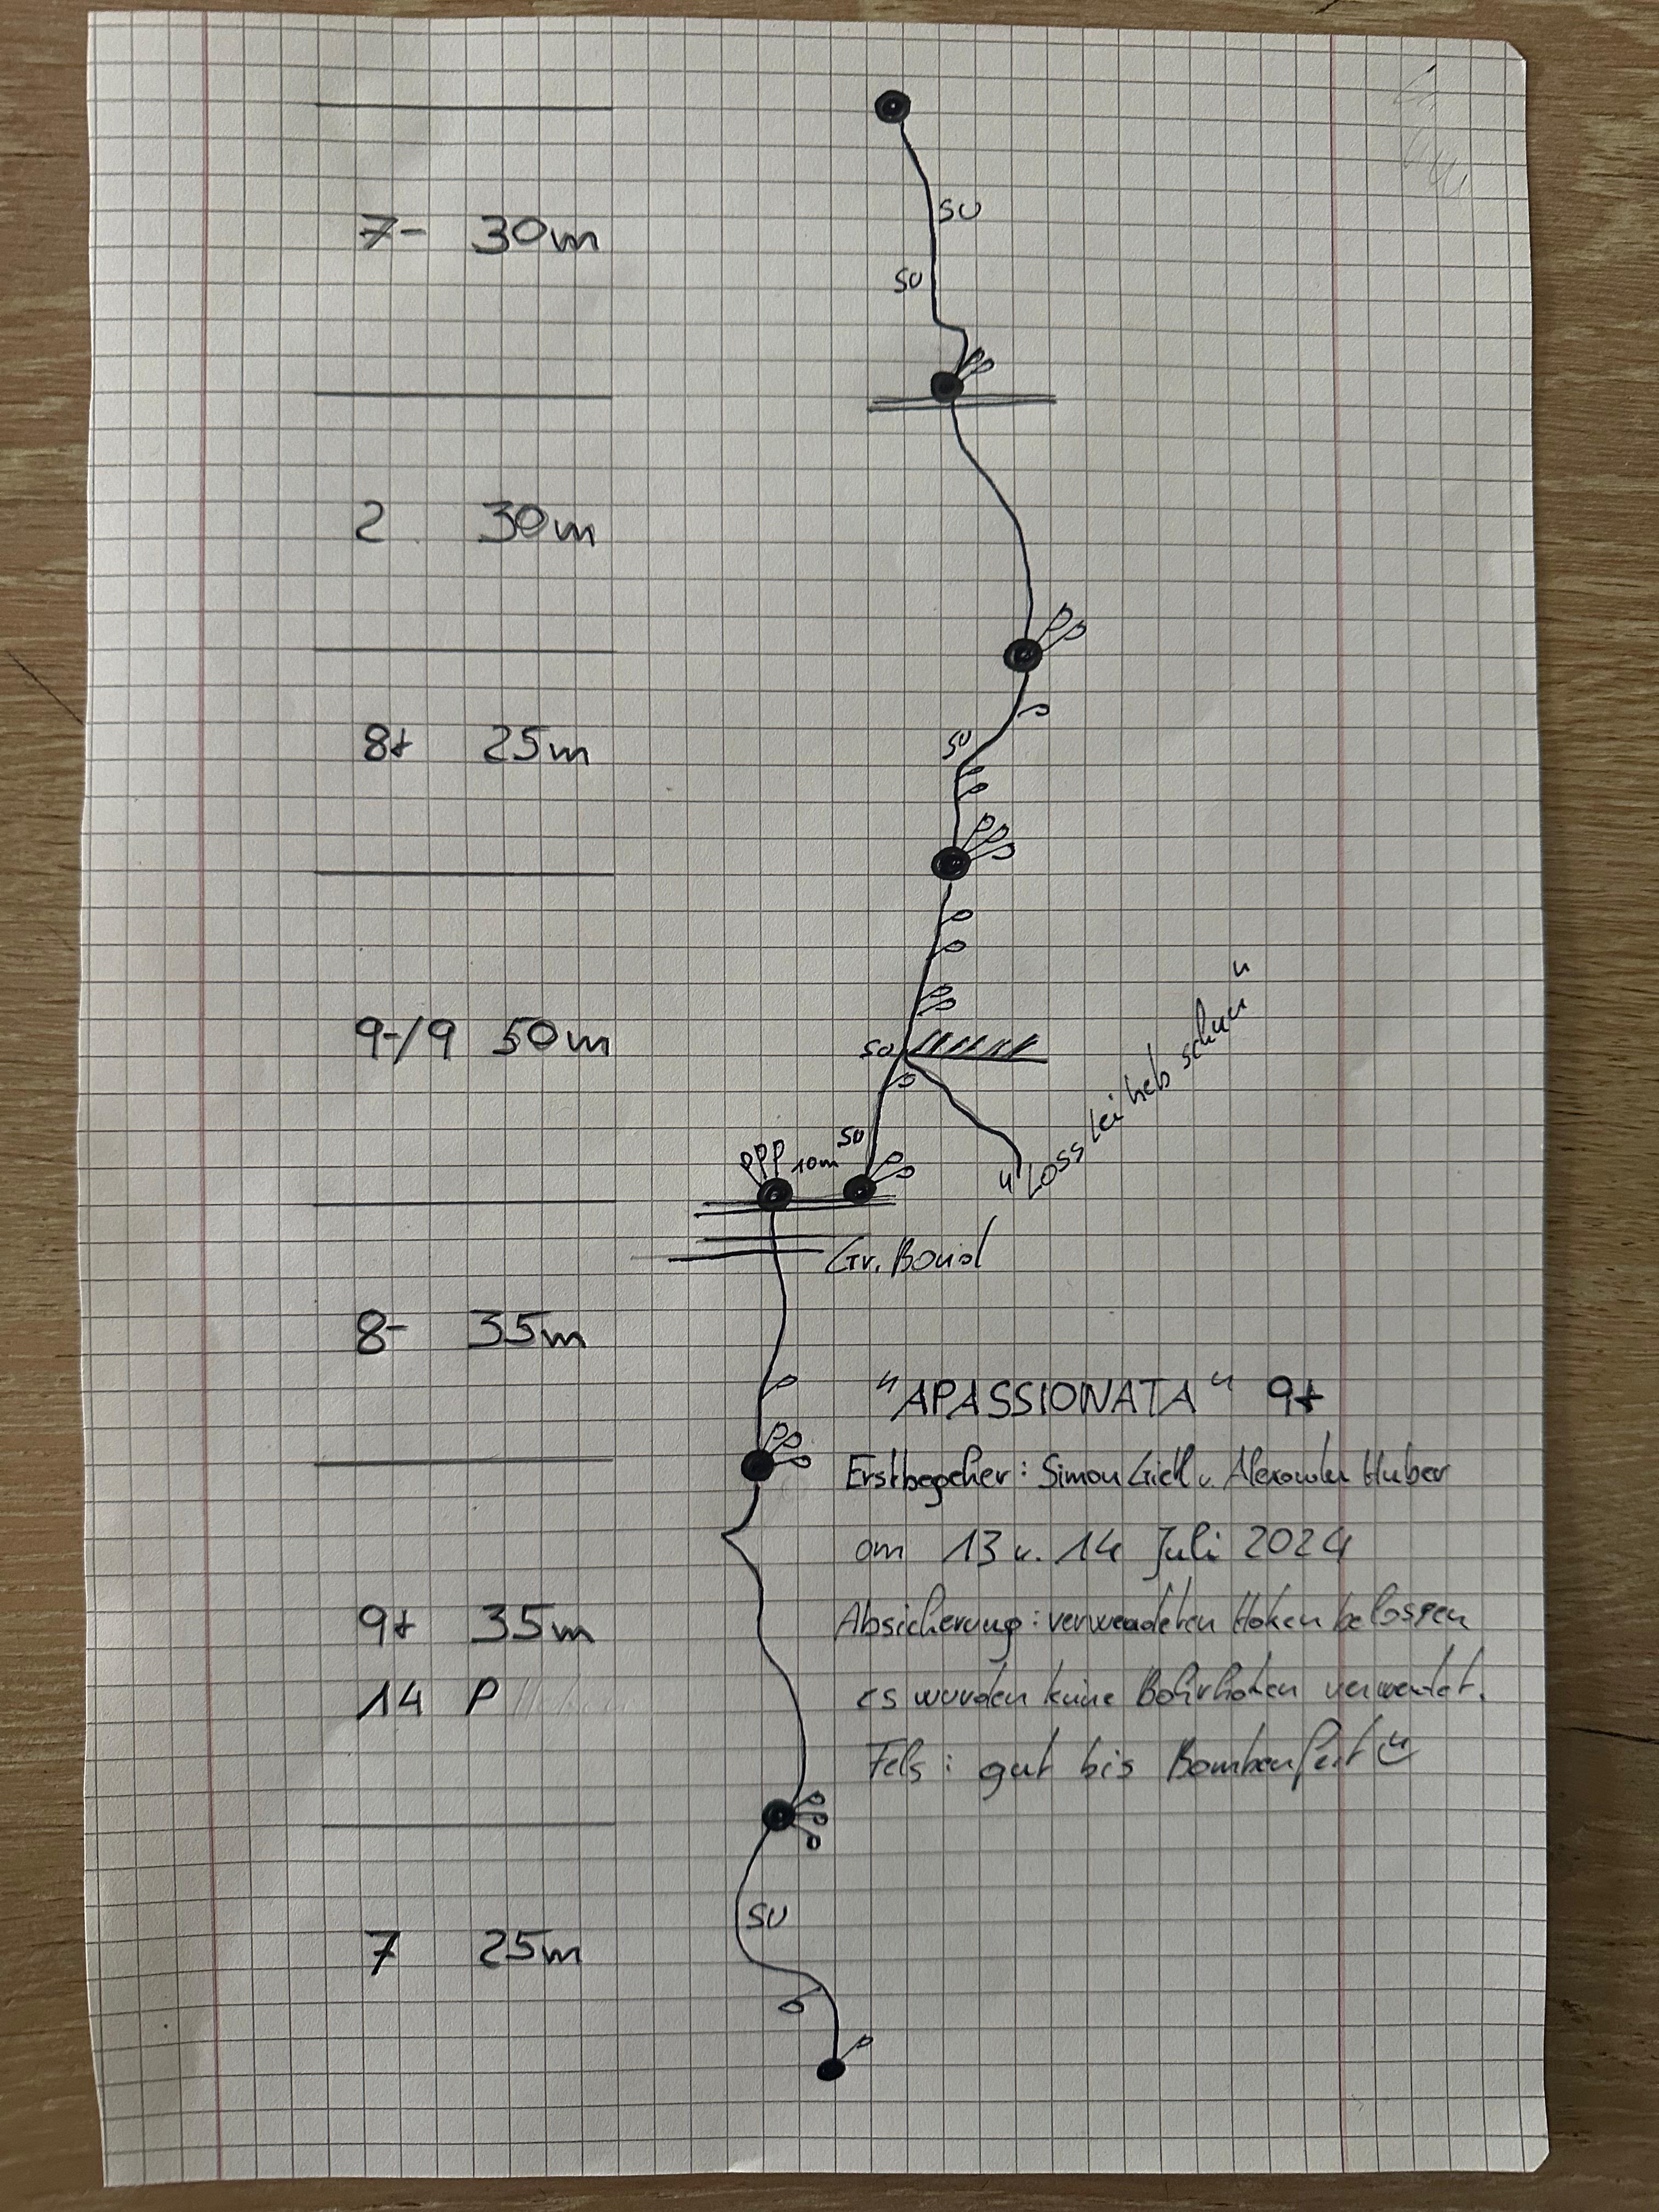 SU
7- 30m
SU
2 30m
8+ 25m
SU
"Loss lei heb schun"
9-/9 50m
SU
SU
10m
Gr. Band
8- 35m
"APASSIONATA" 9+
Erstbegeher: Simon Gietl u. Alexander Huber
am 13 u. 14 Juli 2024
9+ 35m
Absicherung: verwendeten Haken belassen
14 P
es wurden keine Bohrhaken verwendet.
Fels: gut bis Bombenfest
SU
7 25m